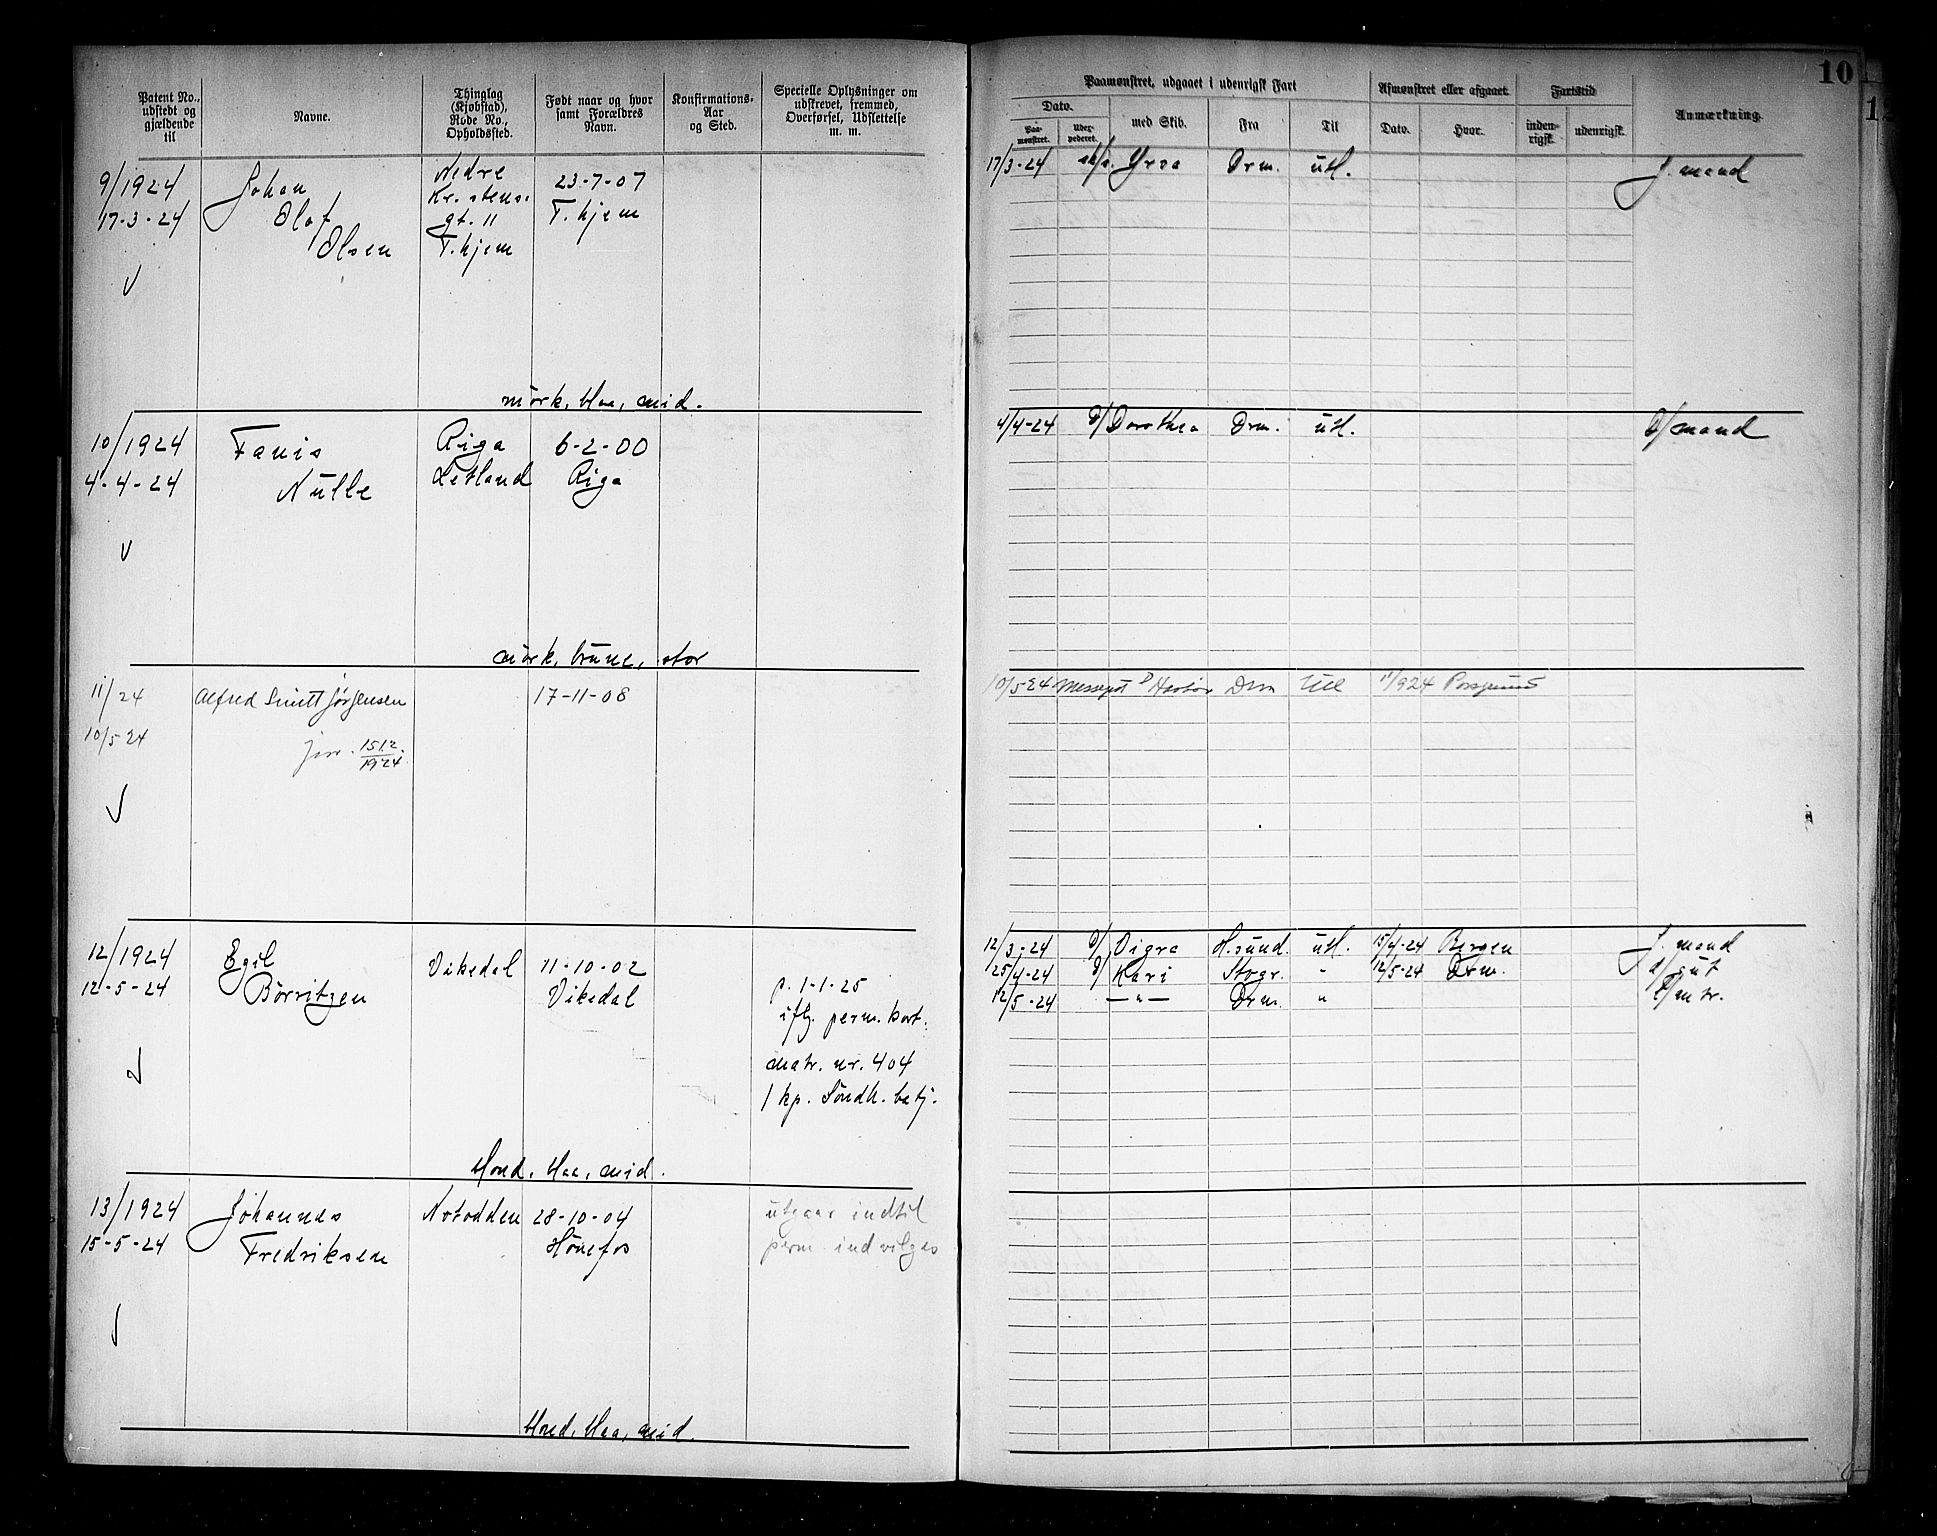 10
12
Patent No., udstedt og gjældende til
Navne.
Thinglag (Kjøbstad), Rode No., Opholdssted.
Født naar og hvor samt Forældres Navn.
Konfirmations-Aar og Sted.
Specielle Oplysninger om udskrevet, fremmed, Overførsel, Udslettelse m. m.
Paamønstret, udgaaet i udenrigsk Fart
Afmønstret eller afgaaet.
Fartstid
Anmærkning.
Dato.
med Skib.
Fra
Til
Dato.
Hvor.
inden-rigsk.
udenrigsk.
Paa-mønstret.
9/1924
17-3-24
Johan
Olaf
Olsen
Nedre
Kr. stens.
gt. 11
T.hjem
23-7-07
T.hjem
17/3-24 Yrsa Drm. utl. J. mand
mörk, blaa, mid.
10/1924
4-4-24
Fanis
Nulle
Riga
Letland
6-2-00
Riga
4/4-24 D/ Dorothea Drm. utl. D/ mand
mörk, brune, stor
11/24
10/5 24
Alfred Smitt Jørgensen
jnr. 1512/1924
17-11-08
10/5-24 Messegut D Drm Utl 11/924 Porsgrund
12/1924
12-5-24
Egil
Börritzen
Vikedal
11-10-02
Vikedal
p. 1-1-25
iflg. perm. kort.
matr. nr. 404
1 kp. Söndh. batj.
12/3-24 D/ Vigra H.sund. utl. 15/4-24 Bergen J. mand
25/4-24 D/ Kari Stvgr. " 12/5-24 Drm. d/ gut
12/5-24 —"— Drm. " l/m tr.
blond, blaa, mid.
13/1924
15-5-24
Johannes
Fredriksen
Notodden
28-10-04
Hönefos
utgaar indtil
perm. ind vilges
blond, blaa, mid.